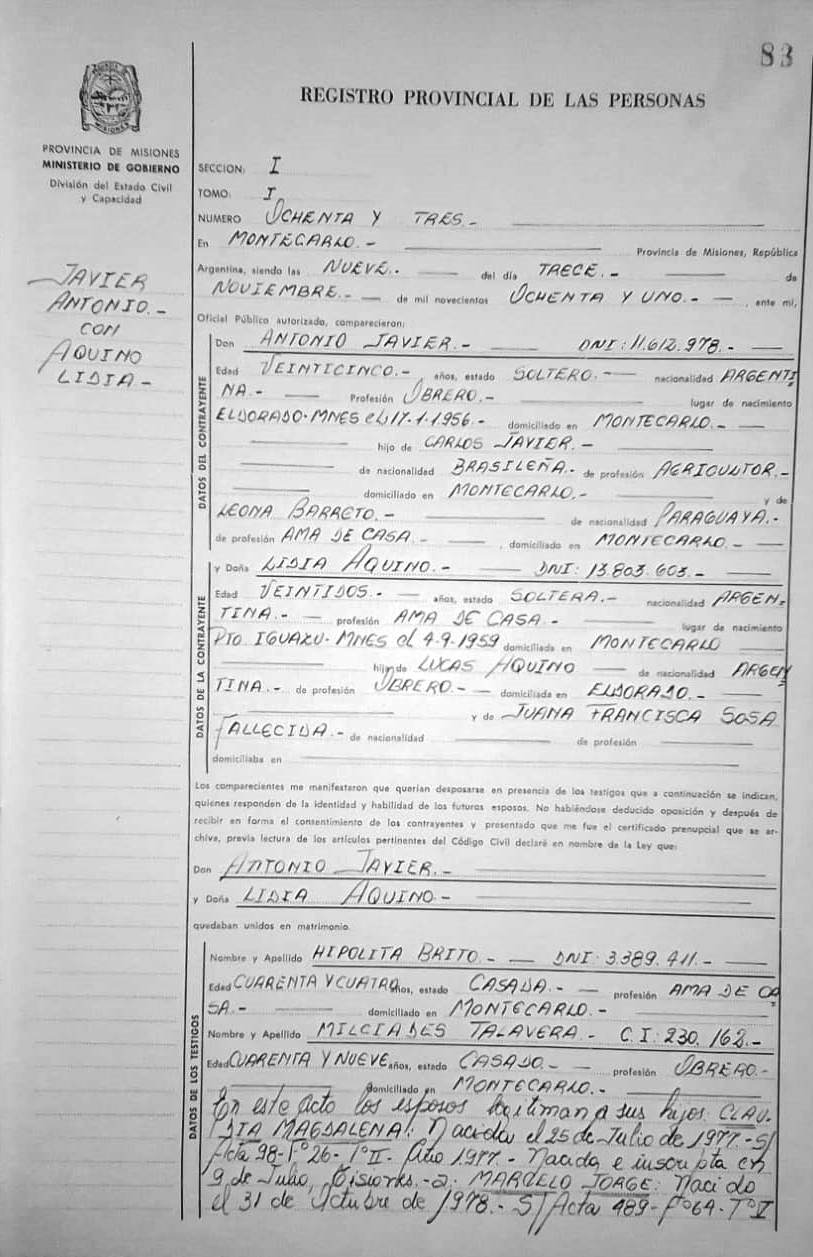 83
REGISTRO PROVINCIAL DE LAS PERSONAS
PROVINCIA DE MISIONES
MINISTERIO DE GOBIERNO
División del Estado Civil
y Capacidad
JAVIER
ANTONIO.-
CON
AQUINO
LIDIA-
SECCION: I
TOMO: I
NUMERO OCHENTA Y TRES.-
En MONTECARLO.- Provincia de Misiones, República
Argentina, siendo las NUEVE.- del día TRECE.- de
NOVIEMBRE.- de mil novecientos OCHENTA Y UNO.- , ante mí,
Oficial Público autorizado, comparecieron:
DATOS DEL CONTRAYENTE
Don ANTONIO JAVIER.- DNI: 11.612.978.-
Edad VEINTICINCO.- , años, estado SOLTERO.- nacionalidad ARGENTI
NA.- Profesión OBRERO.- lugar de nacimiento
ELDORADO-MNES el 17-1-1956.- domiciliado en MONTECARLO.-
hijo de CARLOS JAVIER.-
de nacionalidad BRASILEÑA.- de profesión AGRICULTOR.-
domiciliado en MONTECARLO.- y de
LEONA BARRETO.- de nacionalidad PARAGUAYA.-
de profesión AMA DE CASA.- , domiciliado en MONTECARLO.-
DATOS DE LA CONTRAYENTE
y Doña LIDIA AQUINO.- DNI: 13.803.603.-
Edad VEINTIDOS.- años, estado SOLTERA.- nacionalidad ARGEN-
TINA.- profesión AMA DE CASA.- lugar de nacimiento
PTO IGUAZU-MNES el 4-9-1959 domiciliada en MONTECARLO
hija de LUCAS AQUINO de nacionalidad ARGEN
TINA.- de profesión OBRERO.- domiciliada en ELDORADO.-
y de JUANA FRANCISCA SOSA
FALLECIDA.- de nacionalidad de profesión
domiciliaba en
Los comparecientes me manifestaron que querían desposarse en presencia de los testigos que a continuación se indican,
quienes responden de la identidad y habilidad de los futuros esposos. No habiéndose deducido oposición y después de
recibir en forma el consentimiento de los contrayentes y presentado que me fue el certificado prenupcial que se ar-
chiva, previa lectura de los artículos pertinentes del Código Civil declaré en nombre de la Ley que:
Don ANTONIO JAVIER.-
y Doña LIDIA AQUINO.-
quedaban unidos en matrimonio.
DATOS DE LOS TESTIGOS
Nombre y Apellido HIPOLITA BRITO.- DNI: 3.389.411.-
Edad CUARENTA Y CUATRO años, estado CASADA.- profesión AMA DE CA
SA.- domiciliado en MONTECARLO.-
Nombre y Apellido MILCIADES TALAVERA.- C.I: 230.162.-
Edad CUARENTA Y NUEVE años, estado CASADO.- profesión OBRERO.-
domiciliado en MONTECARLO.-
En este acto los esposos legitiman a sus hijos: CLAU-
DIA MAGDALENA: Nacida el 25 de Julio de 1977.- S/
Acta 98-Fº26-TºII- Año 1977.- Nacida e inscripta en
9 de Julio, Misiones.-2- MARCELO JORGE: Nacido
el 31 de Octubre de 1978.- S/ Acta 489-Fº64-TºV